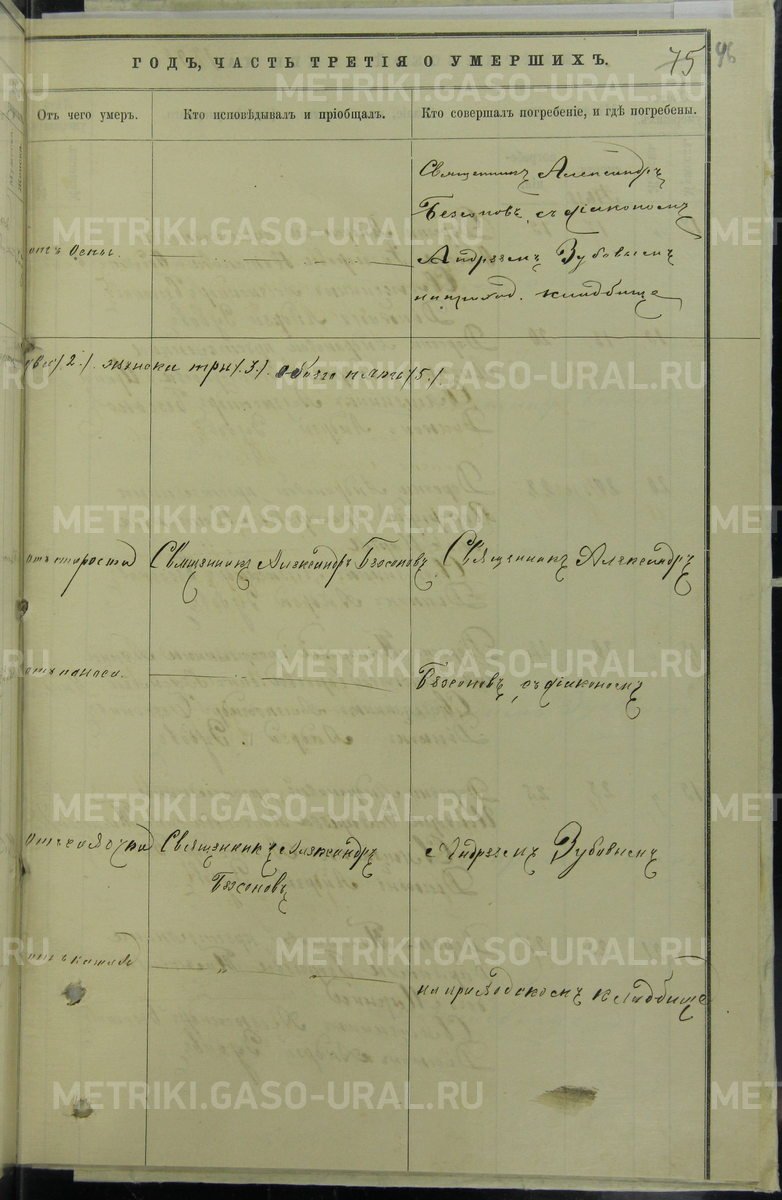 ГОДЪ, ЧАСТЬ ТРЕТІЯ О УМЕРШИХЪ.
75
96
Отъ чего умеръ.
Кто исповѣдывалъ и пріобщалъ.
Кто совершалъ погребеніе, и гдѣ погребены.
отъ оспы.
Священникъ Александръ
Безсоновъ, съ діакономъ
Андреемъ Зубовымъ
на приход. кладбище
/2./. женска три /3./. обоего пять /5./
отъ старости
Священникъ Александръ Безсоновъ
Священникъ Александръ
отъ поноса.
Безсоновъ, съ діакономъ
Священникъ Александръ
Безсоновъ
Андреемъ Зубовымъ
отъ кашля
на приходскомъ кладбище
METRIKI.GASO-URAL.RU